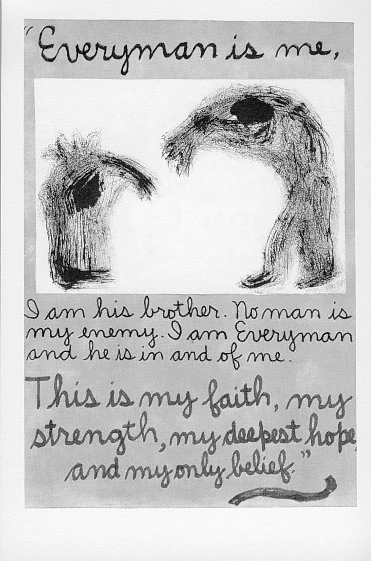 "Everyman is me,
I am his brother. No man is
my enemy. I am Everyman
and he is in and of me.
This is my faith, my
strength, my deepest hope,
and my only belief."